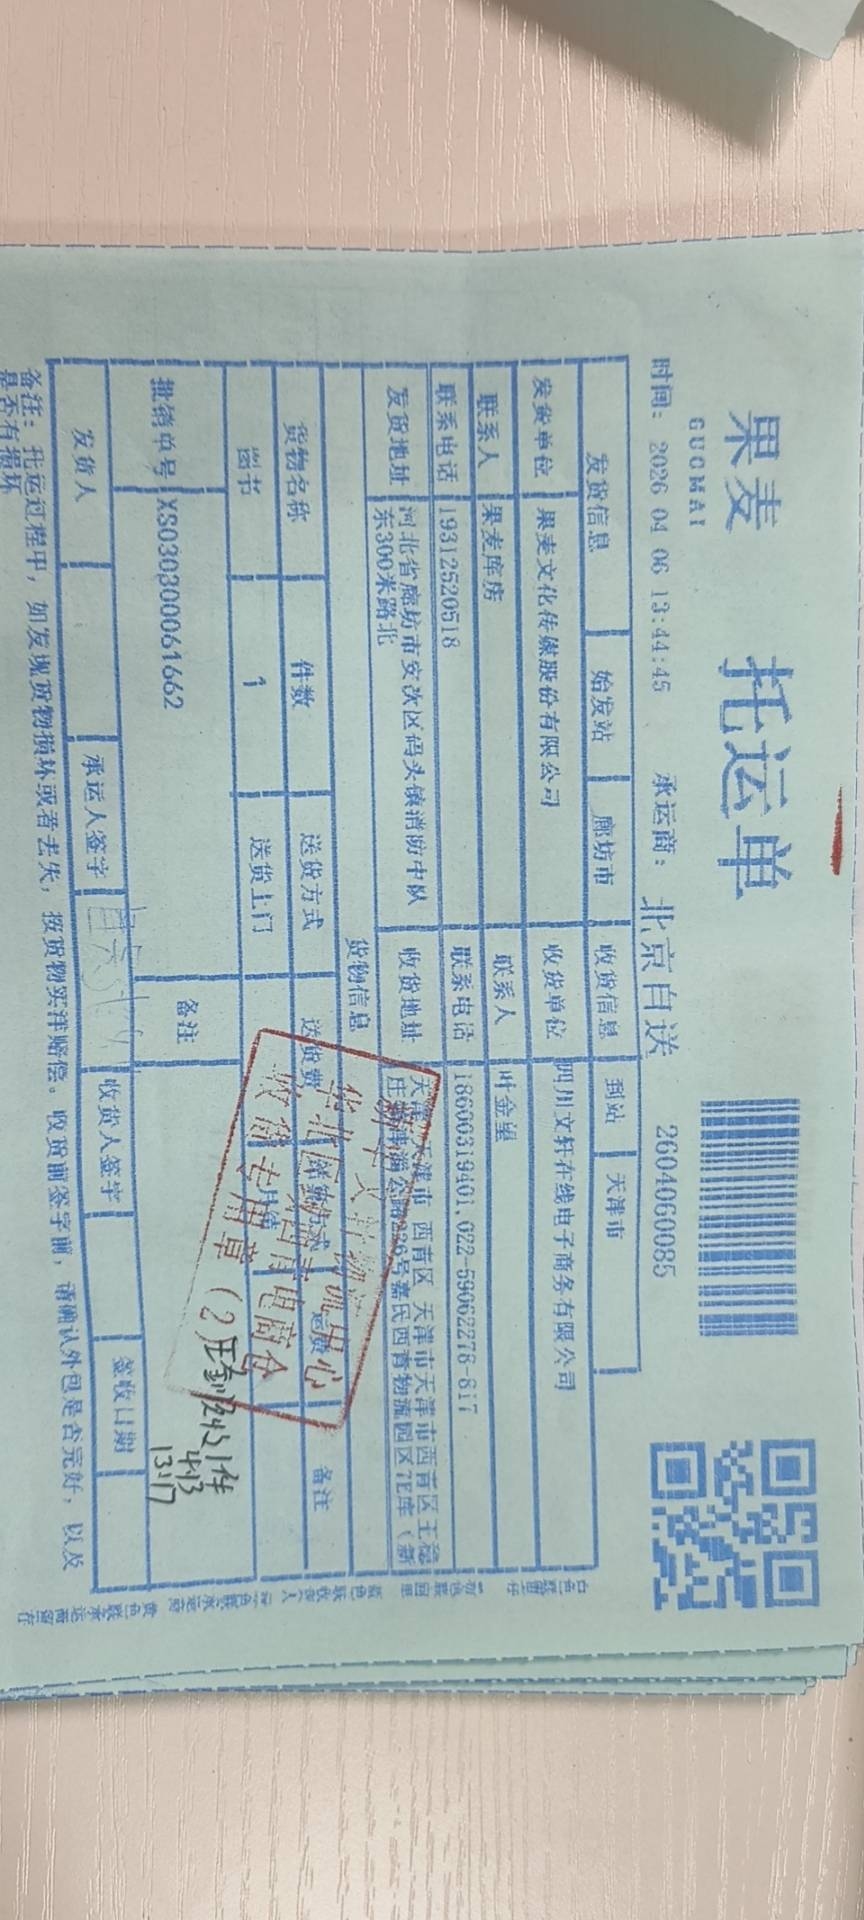 果麦 托运单
GUOMAI
时间: 2026 04 06 13:44:45 承运商: 北京自送 2604060085
发货信息 始发站 廊坊市 收货信息 到站 天津市
发货单位 果麦文化传媒股份有限公司 收货单位 四川文轩在线电子商务有限公司
联系人 果麦库房 联系人
联系电话 19312520518 联系电话 18600319401,022-59062278-817
发货地址 河北省廊坊市安次区码头镇消防中队 收货地址 天津 天津市 西青区 天津市天津市西青区王稳
东300米路北 庄镇津淄公路226号嘉民西青物流园区7E库（新
货物信息
货物名称 件数 送货方式 送货费 结算方式 运费 备注
图书 1 送货上门 月结
批销单号 XS030300061662 备注
发货人 承运人签字 收货人签字 签收日期
备注: 托运过程中，如发现货物损坏或者丢失，按货物实洋赔偿。收货前签字前，请确认外包是否完好，以及
是否有损坏
新华文轩物流中心
华北区域西青电商仓
收货专用章（2）
实收1件
4.13
13:17